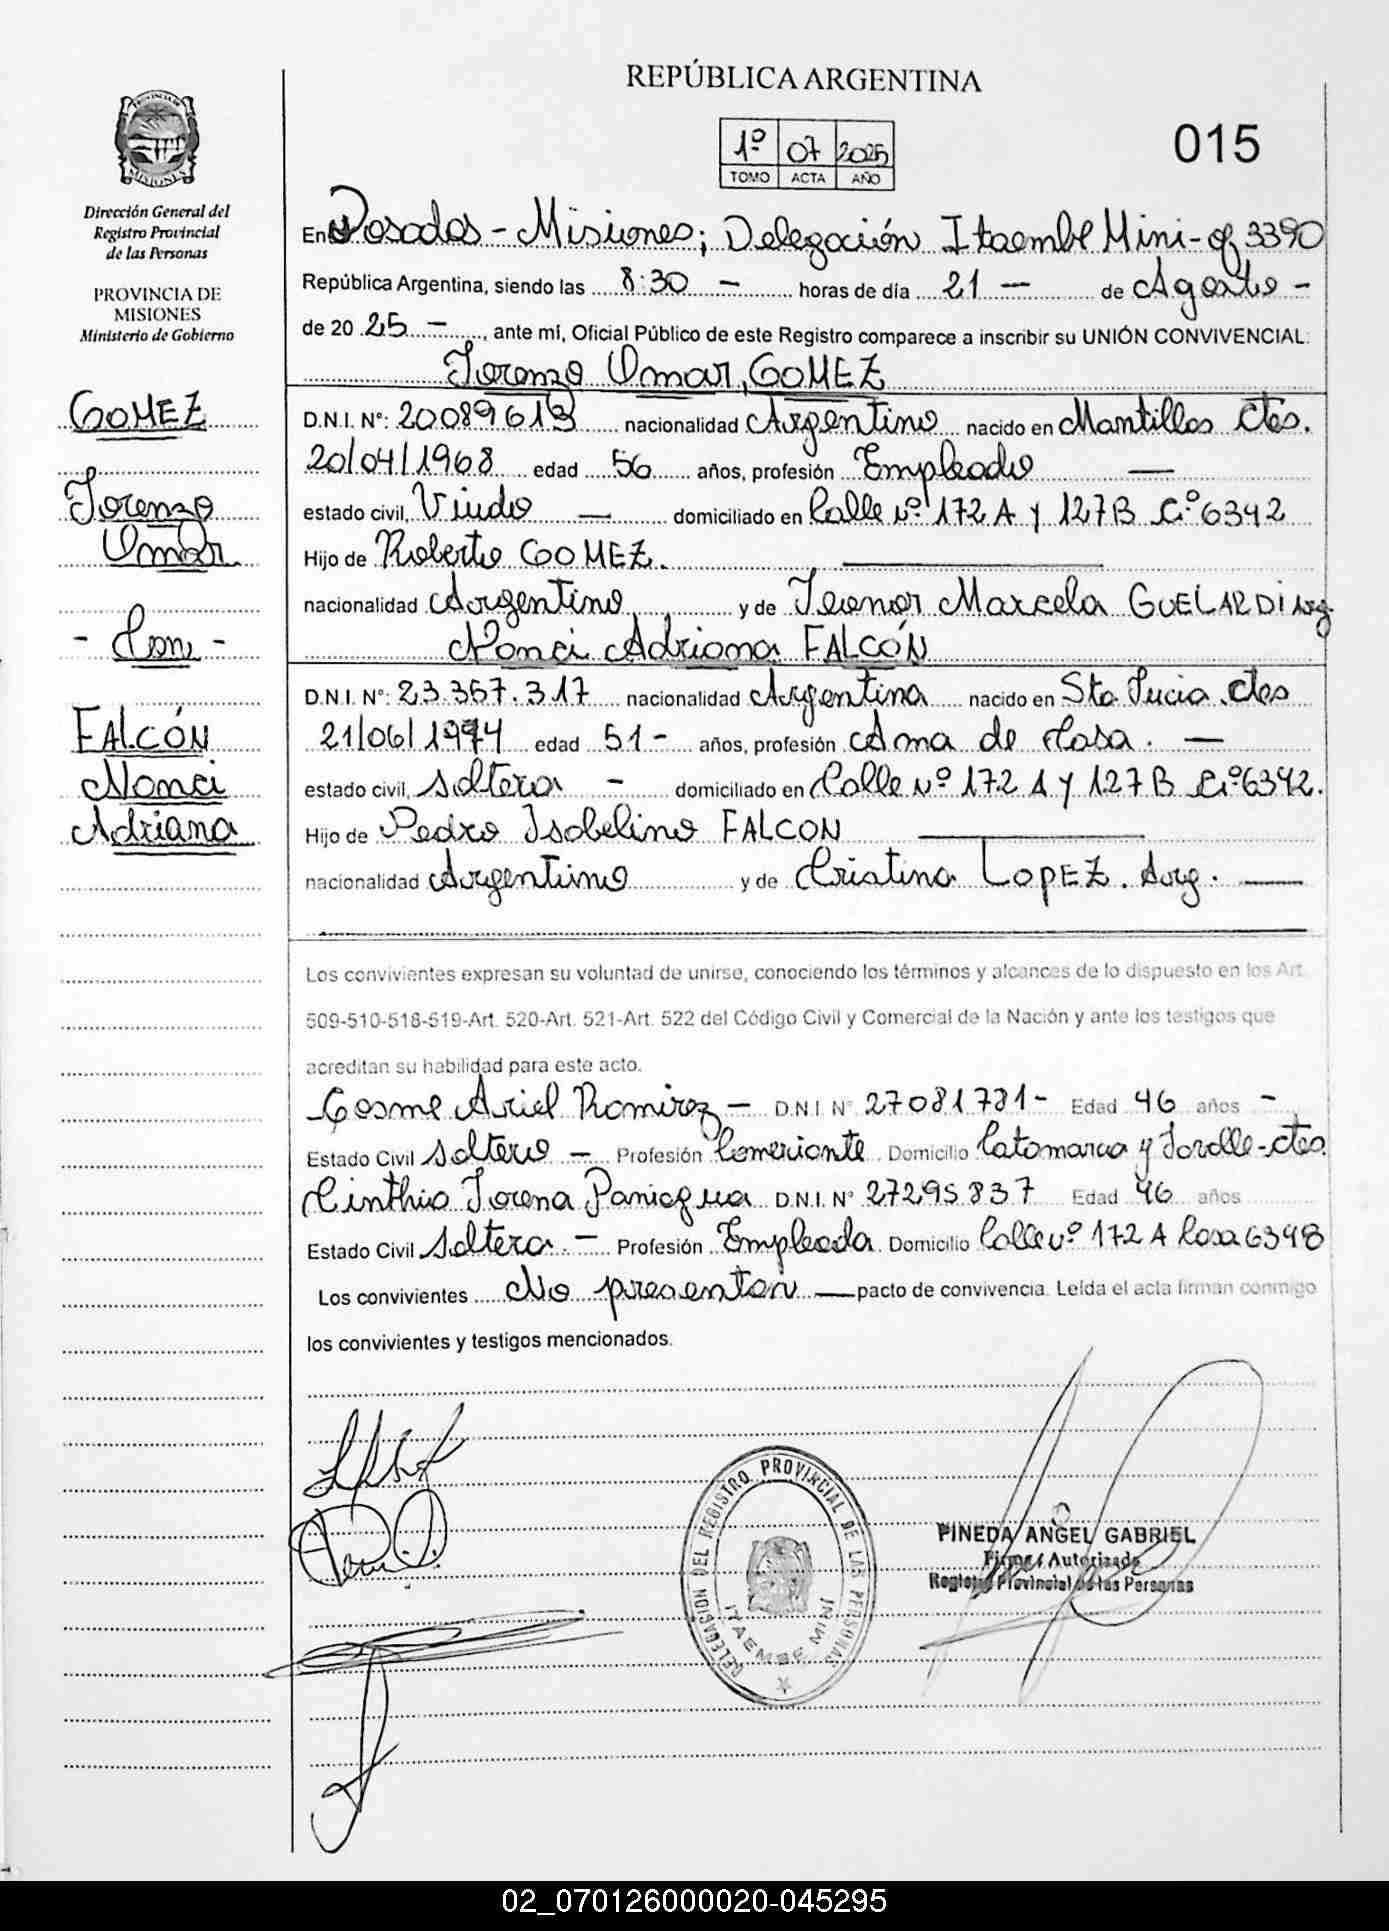 REPÚBLICA ARGENTINA
1º 07 2025
TOMO ACTA AÑO
015
PROVINCIA DE MISIONES
Dirección General del
Registro Provincial
de las Personas
PROVINCIA DE
MISIONES
Ministerio de Gobierno
GOMEZ
Lorenzo
Omar
- Con -
FALCÓN
Nanci
Adriana
En Posadas - Misiones; Delegación Itaembe Mini - of 3390
República Argentina, siendo las 8:30 — horas de día 21 — de Agosto -
de 20 25 -, ante mí, Oficial Público de este Registro comparece a inscribir su UNIÓN CONVIVENCIAL:
Lorenzo Omar, GOMEZ
D.N.I. Nº: 20089613 nacionalidad Argentino nacido en Mantillas Ctes.
20/04/1968 edad 56 años, profesión Empleado —
estado civil, Viudo — domiciliado en Calle nº 172 A y 127 B Cº 6342
Hijo de Roberto GOMEZ.
nacionalidad Argentino y de Leonor Marcela GUELARDI Arg
Nanci Adriana FALCÓN
D.N.I. Nº: 23.357.317 nacionalidad Argentina nacido en Sta Lucia. Ctes
21/06/1974 edad 51 - años, profesión Ama de Casa. —
estado civil, soltera - domiciliado en Calle Nº 172 A y 127 B Cº 6342.
Hijo de Pedro Isabelino FALCON
nacionalidad Argentino y de Cristina LOPEZ. Arg. —
Los convivientes expresan su voluntad de unirse, conociendo los términos y alcances de lo dispuesto en los Art.
509-510-518-519-Art. 520-Art. 521-Art. 522 del Código Civil y Comercial de la Nación y ante los testigos que
acreditan su habilidad para este acto.
Cosme Ariel Ramirez - D.N.I. Nº 27081781 - Edad 46 años -
Estado Civil soltero - Profesión Comerciante. Domicilio Catamarca y Lavalle - Ctes.
Cinthia Lorena Paniagua D.N.I. Nº 27295837 Edad 46 años
Estado Civil soltera. - Profesión Empleada. Domicilio Calle nº 172 A Casa 6348
Los convivientes No presentan — pacto de convivencia. Leída el acta firman conmigo
los convivientes y testigos mencionados.
DELEGACION DEL REGISTRO PROVINCIAL DE LAS PERSONAS
ITAEMBE MINÍ
PINEDA ANGEL GABRIEL
Firma Autorizada
Registro Provincial de las Personas
02_070126000020-045295